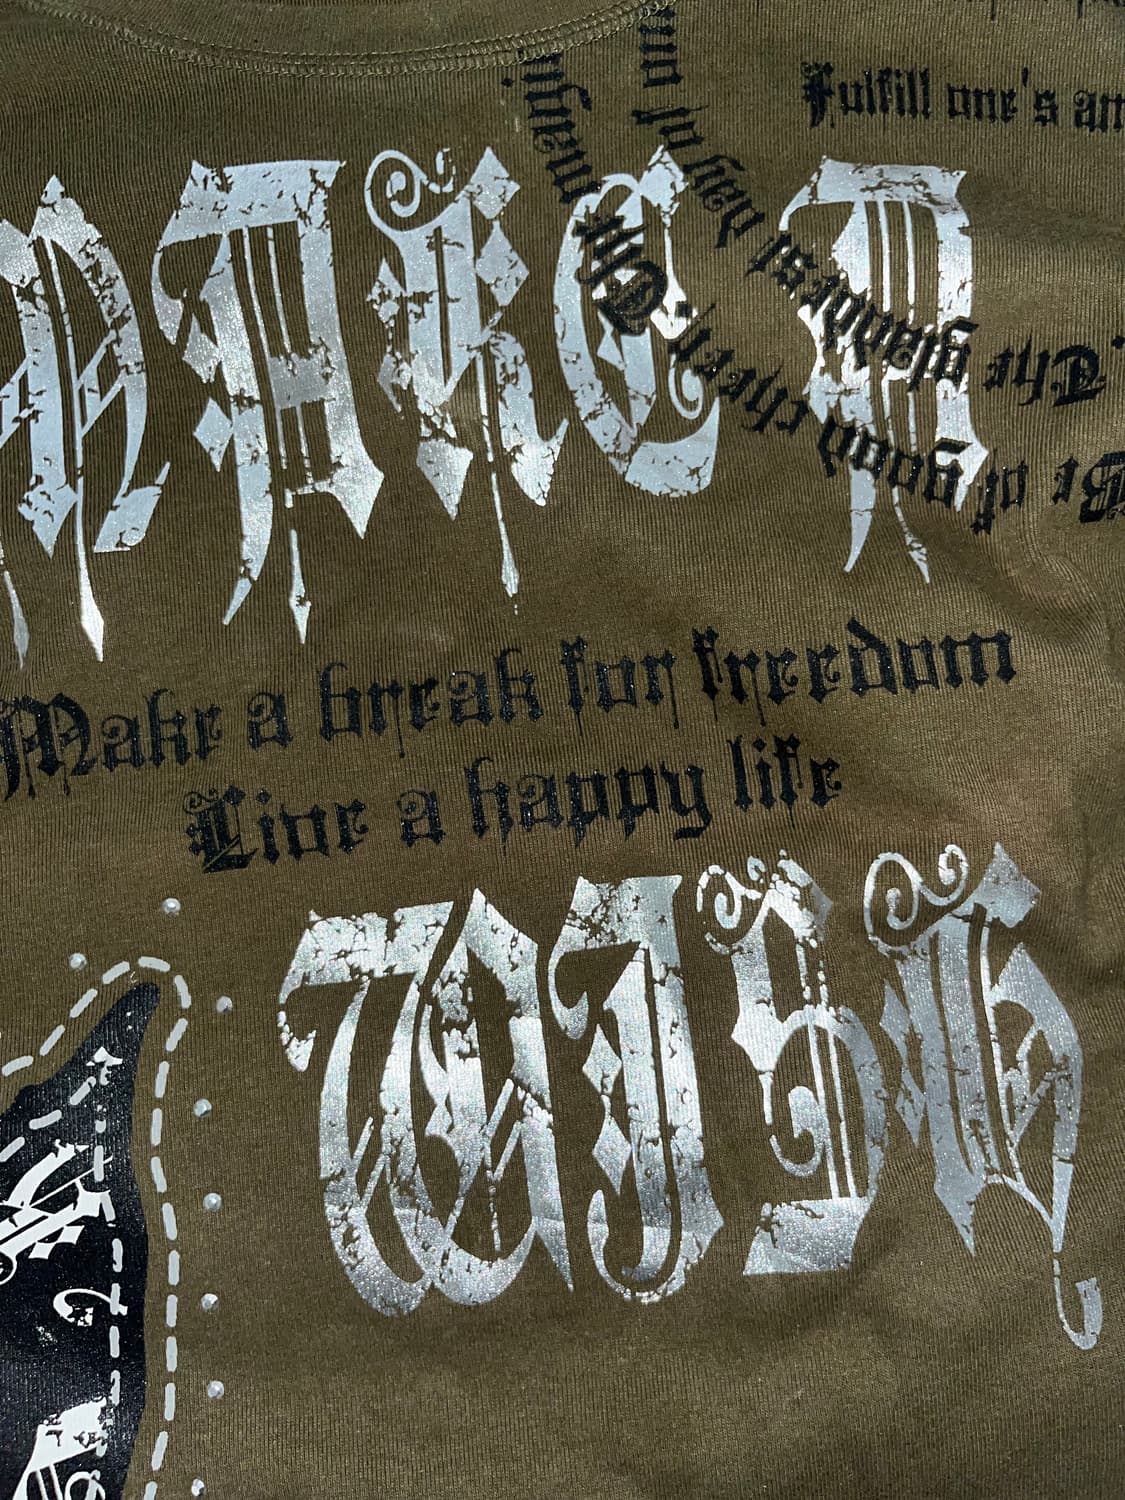 Fulfill one's
The gladdest day of
Be of good cheer. This
MAKE A
Make a break for freedom
Live a happy life
WISH